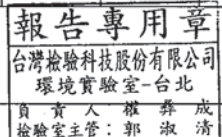 報告專用章
台灣檢驗科技股份有限公司
環境實驗室-台北
負責人 權彝成
檢驗室主管：郭淑清